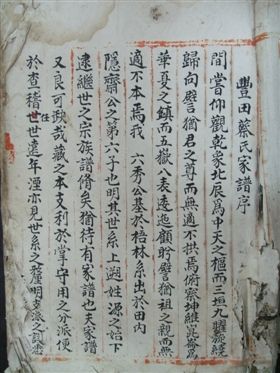 豐田蔡氏家譜序
間嘗仰觀乾象北辰為中天之樞而三垣九曜旋繞
歸向譬猶君之尊而無適不拱焉俯察坤維崑崙為
華夏之鎮而五嶽八表逶迤顧盻譬猶祖之親而無
適不本焉我 六秀公基於梧林系出於田內
隱齋公之第六子也明其世系上溯姓源之始下
逮繼世之宗族譜脩矣猶待有家譜也夫家譜
又良可
哉藏之本支利於掌守用之分派便
於查稽世世遠年湮亦見世系之釐明支派之
任